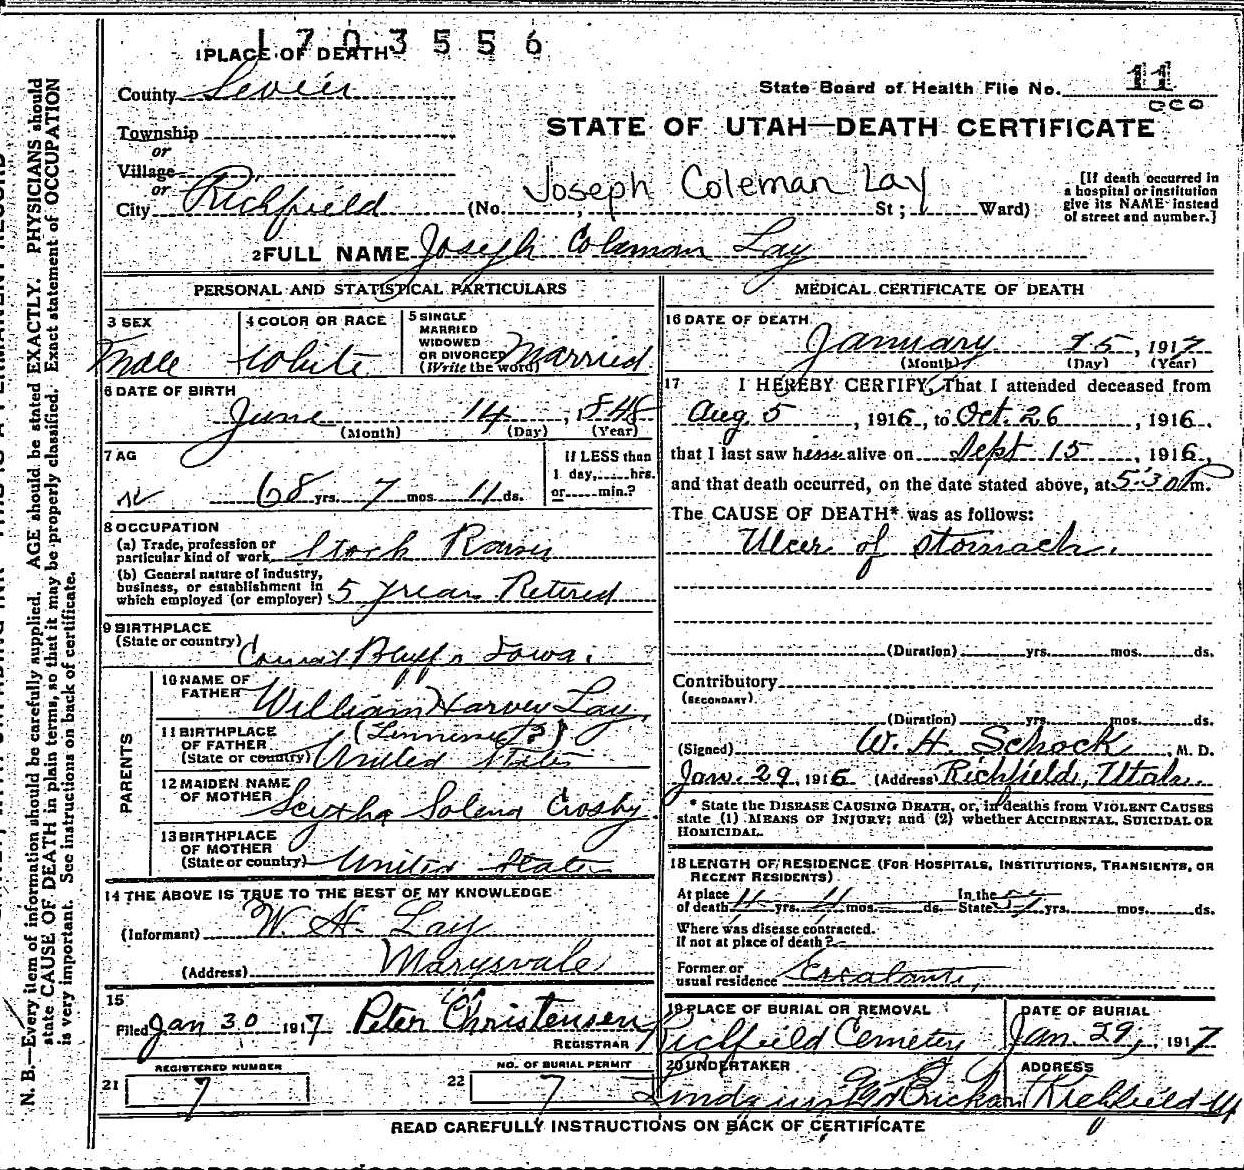 1703556
1 PLACE OF DEATH
County Sevier
State Board of Health File No. 11
Township
or
STATE OF UTAH—DEATH CERTIFICATE
Village
or
City Richfield (No. Joseph Coleman Lay St; Ward)
[If death occurred in
a hospital or institution
give its NAME instead
of street and number.]
2 FULL NAME Joseph Coleman Lay
PERSONAL AND STATISTICAL PARTICULARS
3 SEX
Male
4 COLOR OR RACE
White
5 SINGLE
MARRIED
WIDOWED
OR DIVORCED
(Write the word) Married
6 DATE OF BIRTH
June 14, 1848
(Month) (Day) (Year)
7 AG
68 yrs. 7 mos 11 ds.
If LESS than
1 day, hrs.
or min.?
8 OCCUPATION
(a) Trade, profession or
particular kind of work
(b) General nature of industry,
business, or establishment in
which employed (or employer) 5 years Retired
9 BIRTHPLACE
(State or country) Bluffs Iowa.
PARENTS
10 NAME OF
FATHER William Harvey Lay
11 BIRTHPLACE
OF FATHER
(State or country) United States
12 MAIDEN NAME
OF MOTHER Crosby
13 BIRTHPLACE
OF MOTHER
(State or country) United States
14 THE ABOVE IS TRUE TO THE BEST OF MY KNOWLEDGE
(Informant) W. H. Lay
(Address) Marysvale
15
Filed Jan 30 1917 Peter Christensen
REGISTRAR
REGISTERED NUMBER
21 7
NO. OF BURIAL PERMIT
22 7
MEDICAL CERTIFICATE OF DEATH
16 DATE OF DEATH
January 25, 1917
(Month) (Day) (Year)
17 I HEREBY CERTIFY, That I attended deceased from
Aug. 5, 1916, to Oct. 26, 1916.
that I last saw h alive on Sept 15, 1916,
and that death occurred, on the date stated above, at 5:30 P m.
The CAUSE OF DEATH* was as follows:
Ulcer of stomach.
(Duration) yrs. mos. ds.
Contributory
(SECONDARY)
(Duration) yrs. mos. ds.
(Signed) W. H. Schock, M. D.
Jan. 29, 1916 (Address) Richfield, Utah.
* State the DISEASE CAUSING DEATH, or, in deaths from VIOLENT CAUSES
state (1) MEANS OF INJURY; and (2) whether ACCIDENTAL, SUICIDAL OR
HOMICIDAL.
18 LENGTH OF RESIDENCE (FOR HOSPITALS, INSTITUTIONS, TRANSIENTS, OR
RECENT RESIDENTS)
At place
of death 4 yrs. 4 mos. ds.
In the
State 57 yrs. mos. ds.
Where was disease contracted.
if not at place of death?
Former or
usual residence Escalante,
19 PLACE OF BURIAL OR REMOVAL
Richfield Cemetery
DATE OF BURIAL
Jan. 29, 1917
20 UNDERTAKER
ADDRESS
Richfield U
READ CAREFULLY INSTRUCTIONS ON BACK OF CERTIFICATE
N. B.—Every item of information should be carefully supplied. AGE should be stated EXACTLY. PHYSICIANS should
state CAUSE OF DEATH in plain terms, so that it may be properly classified. Exact statement of OCCUPATION
is very important. See instructions on back of certificate.